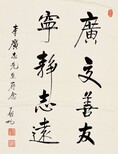 廣交善友
寧靜志遠
李廣志先生存念